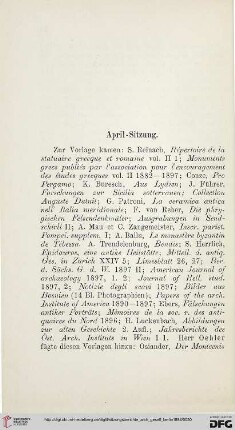 April-Sitzung.
Zur Vorlage kamen: S. Reinach, Répertoire de la
statuaire grecque et romaine vol. II 1; Monuments
grecs publiés par l'association pour l'encouragement
des études grecques vol. II 1882–1897; Conze, Pro
Pergamo; K. Buresch, Aus Lydien; J. Führer,
Forschungen zur Sicilia sotterranea; Collection
Auguste Dutuit; G. Patroni, La ceramica antica
nell' Italia meridionale; F. von Reber, Die phry-
gischen Felsendenkmäler; Ausgrabungen in Send-
schirli II; A. Mau et C. Zangemeister, Inscr. pariet.
Pompei. supplem. I; A. Ballu, Le monastère byzantin
de Tébessa. A. Trendelenburg, Bendis; S. Herrlich,
Epidauros, eine antike Heilstätte, Mitteil. d. antiq.
Ges. in Zürich XXIV 5; Limesblatt 26, 27; Ber.
d. Sächs. G. d. W. 1897 II; American journal of
archaeology 1897, 1. 2; Journal of Hell. stud.
1897, 2; Notizie degli scavi 1897; Bilder aus
Messien (14 Bl. Photographien); Papers of the arch.
Institute of America 1890–1897; Ebers, Fälschungen
antiker Porträts; Mémoires de la soc. r. des anti-
quaires du Nord 1896; H. Luckenbach, Abbildungen
zur alten Geschichte 2. Aufl.; Jahresberichte des
Öst. Arch. Instituts in Wien I 1. Herr Oehler
fügte diesen Vorlagen hinzu: Osiander, Der Montcenis